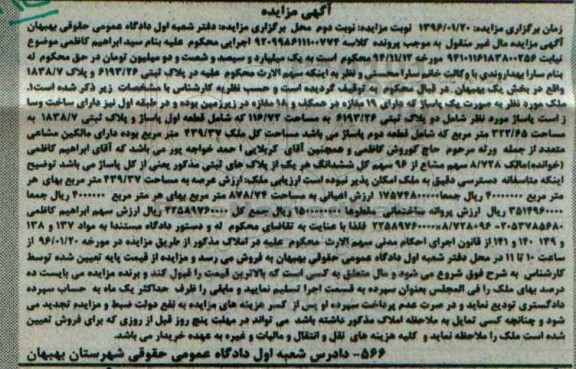 آگهی مزایده
زمان برگزاری مزایده: ۱۳۹۶/۰۱/۲۰ نوبت مزایده: نوبت دوم محل برگزاری مزایده: دفتر شعبه اول دادگاه عمومی حقوقی بهبهان
آگهی مزایده مال غیر منقول به موجب پرونده کلاسه ۹۲۰۹۹۸۶۱۱۱۰۰۷۷۴ اجرایی محکوم علیه بنام سید ابراهیم کاظمی موضوع
نیابت ۹۴۱۰۱۱۶۱۸۳۸۰۰۲۵۶ مورخه ۹۴/۱۱/۱۲ محکوم است به یک میلیارد و سیصد و شصت و دو میلیون تومان در حق محکوم له
بنام سارا بهداروندی با وکالت خانم سارا محسنی و نظر به اینکه سهم الارث محکوم علیه در پلاک ثبتی ۶۱۹۳/۲۶ و ۱۸۳۸/۷
واقع در بخش یک بهبهان در قبال محکوم به توقیف گردیده است و حسب نظریه کارشناس با مشخصات زیر ذکر شده است:
ملک مورد نظر به صورت یک پاساژ که دارای ۱۹ مغازه در همکف و ۱۸ مغازه در زیرزمین بوده و در طبقه اول نیز دارای ساخت وسا
ز است پاساژ مورد نظر شامل دو پلاک ثبتی ۶۱۹۳/۲۶ به مساحت ۱۱۶/۷۲ که شامل قطعه اول پاساژ و پلاک ثبتی ۱۸۳۸/۷ به
مساحت ۳۲۲/۶۵ متر مربع که شامل قطعه دوم پاساژ می باشد مساحت کل ملک ۴۳۹/۳۷ متر مربع بوده دارای مالکین مشاعی
متعدد از جمله ورثه مرحوم حاج کوروش کاظمی و همچنین آقای کربلایی احمد خواجه پور می باشد که آقای ابراهیم کاظمی
(خوانده)مالک ۸/۷۲۸ سهم مشاع از ۹۶ سهم کل ششدانگ هر یک از پلاک های ثبتی مذکور یعنی از کل پاساژ می باشد توضیح
اینکه متاسفانه دسترسی دقیق به ملک امکان پذیر نبوده است ارزیابی ملک: ارزش عرصه به مساحت ۴۳۹/۳۷ متر مربع بهای هر
متر مربع ریال جمعا ارزش اعیانی به مساحت ۸۷۸/۷۴ متر مربع بهای هر متر مربع ریال جمعا
ریال ارزش پروانه ساختمانی مقطوعا ریال جمع کل ریال ارزش سهم ابراهیم کاظمی
ریال فلذا با عنایت به تقاضای محکوم له و دستور دادگاه مستندا به مواد ۱۳۷ و ۱۳۸
و ۱۳۹ ۱۴۰ و ۱۴۱ از قانون اجرای احکام مدنی سهم الارث محکوم علیه در املاک مذکور از طریق مزایده در مورخه ۹۶/۰۱/۲۰ از
ساعت ۱۰ تا ۱۱ در محل دفتر شعبه اول دادگاه عمومی حقوقی بهبهان به فروش می رسد و مزایده از قیمت پایه تعیین شده توسط
کارشناس به شرح فوق شروع می شود و مال متعلق به کسی است که بالاترین قیمت را قبول کند و برنده مزایده می بایست ده
درصد بهای ملک را فی المجلس بعنوان سپرده به قسمت اجرا تسلیم نمایید و مابقی را ظرف حداکثر یک ماه به حساب سپرده
دادگستری تودیع نماید و در صورت عدم پرداخت سپرده او پس از کسر هزینه های مزایده به نفع دولت ضبط و مزایده تجدید می
شود و چنانچه کسی تمایل به ملاحظه املاک مذکور داشته باشد می تواند در مهلت پنج روز قبل از روزی که برای فروش تعیین
شده است ملک را ملاحظه نماید و کلیه هزینه های نقل و انتقال و مالیات و غیره به عهده خریدار می باشد.
۵۶۶- دادرس شعبه اول دادگاه عمومی حقوقی شهرستان بهبهان